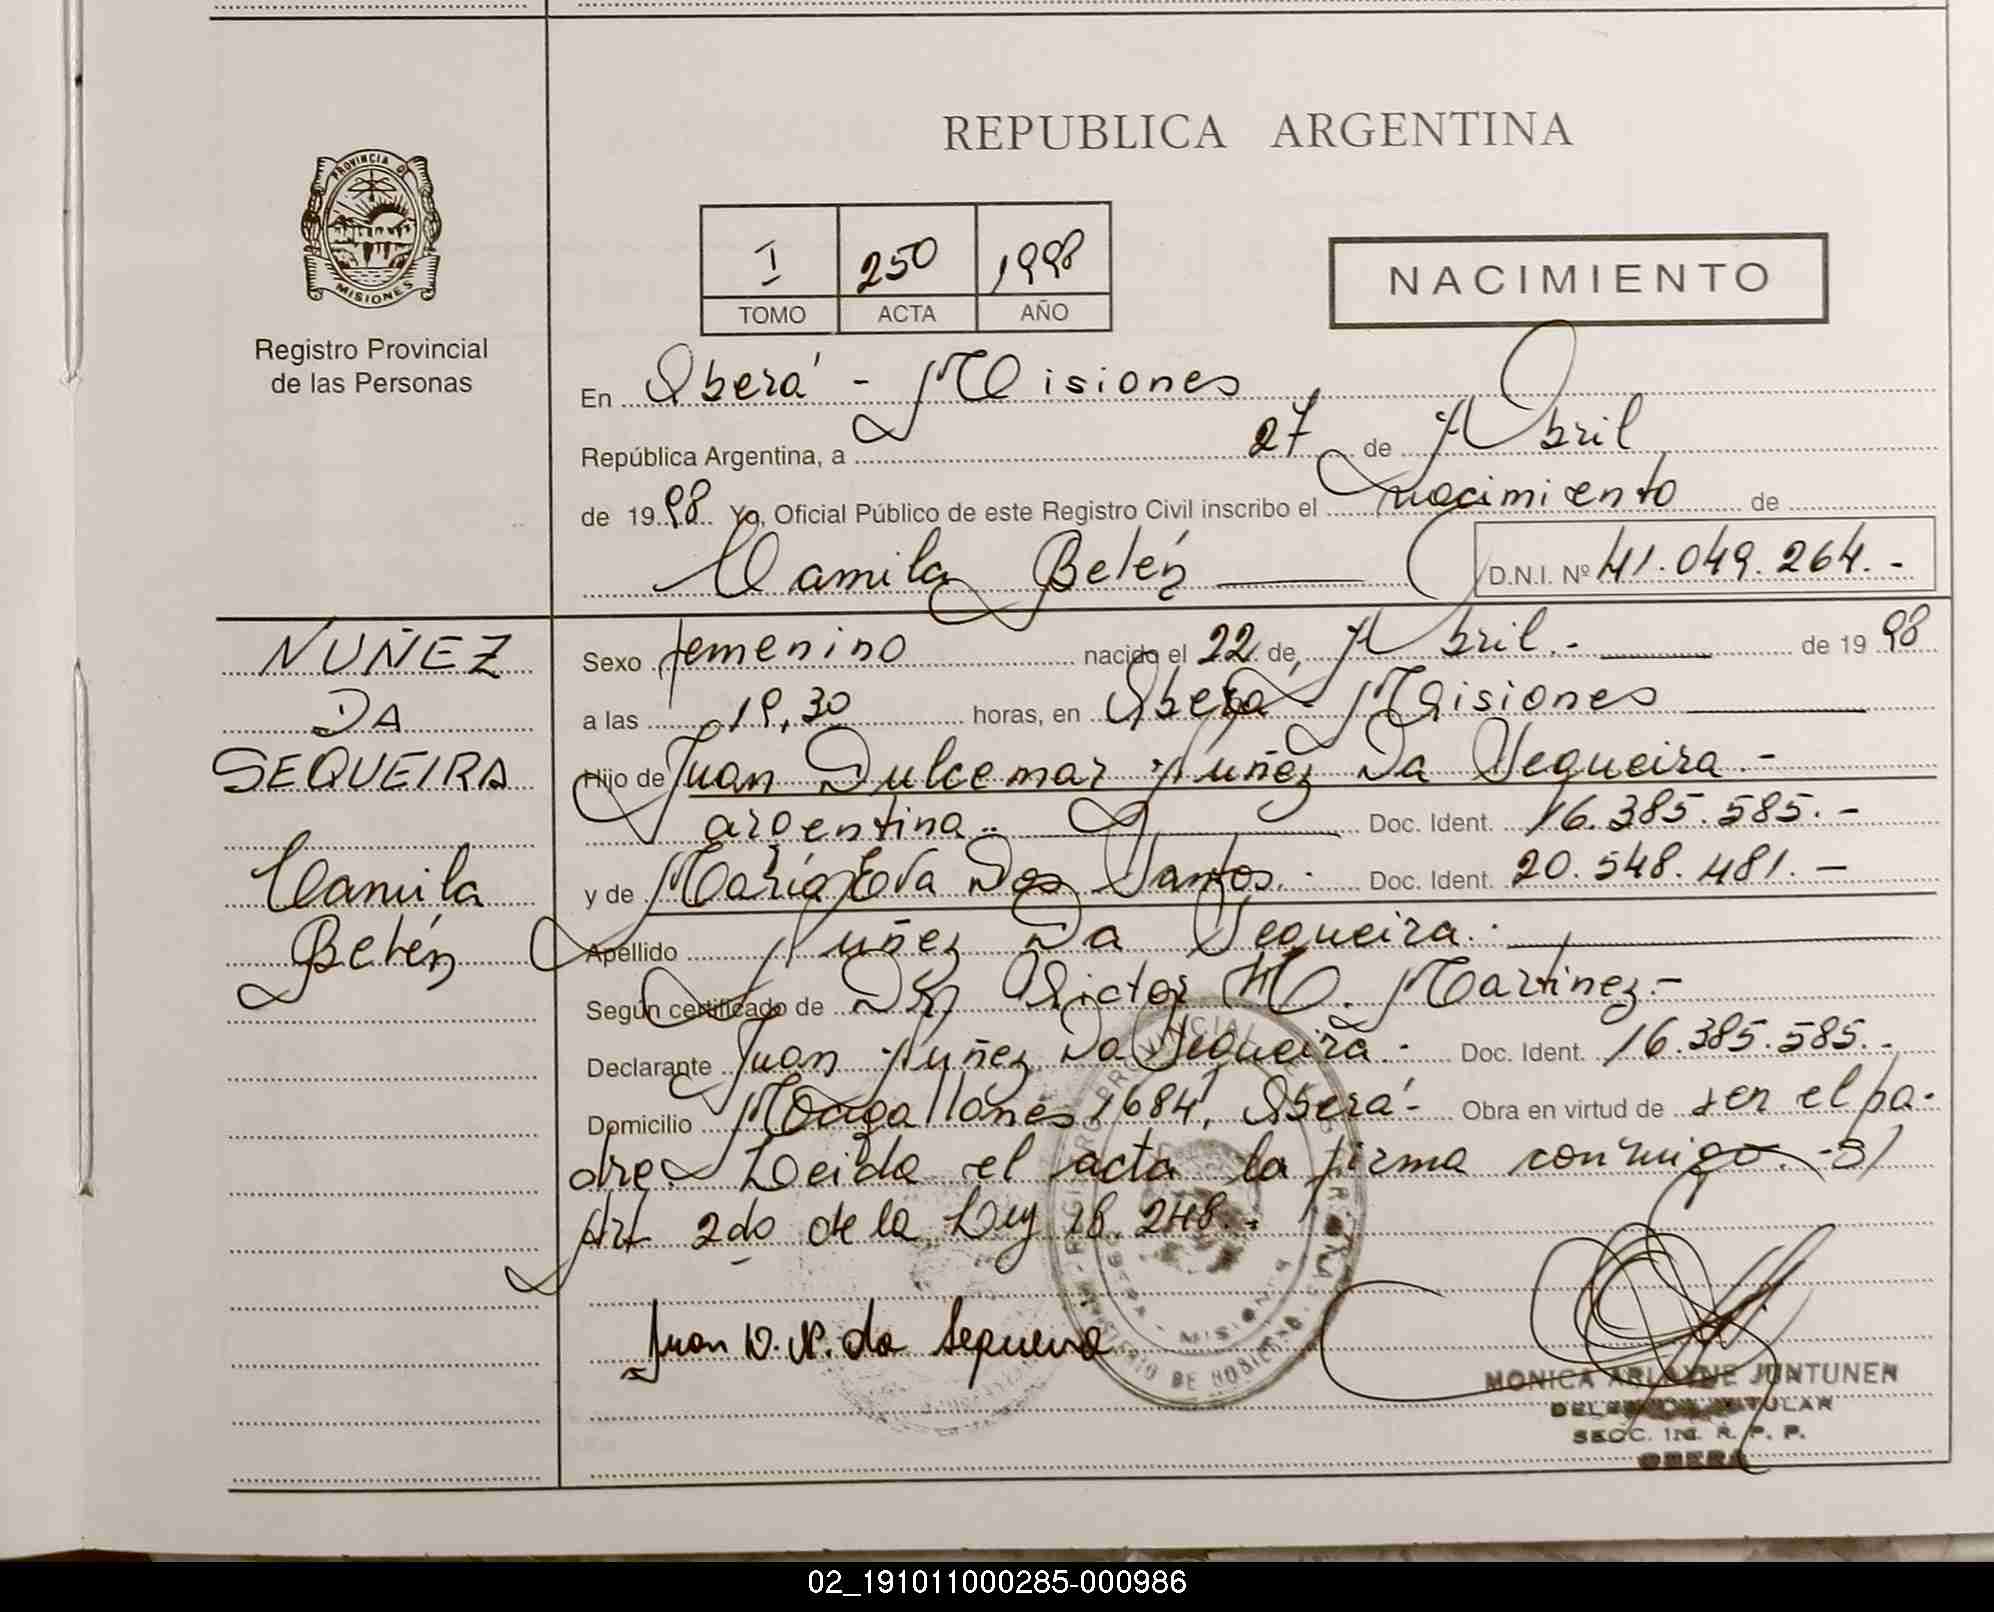 REPUBLICA ARGENTINA
PROVINCIA DE
MISIONES
Registro Provincial
de las Personas
I 250 1998
TOMO ACTA AÑO
NACIMIENTO
En Oberá - Misiones
República Argentina, a 27 de Abril
de 1998 Yo, Oficial Público de este Registro Civil inscribo el nacimiento de
Camila Belén D.N.I. Nº 41.049.264.-
NUÑEZ
DA
SEQUEIRA
Camila
Belén
Sexo femenino nacido el 22 de Abril.- de 1998
a las 19,30 horas, en Oberá - Misiones
Hijo de Juan Dulcemar Nuñez Da Sequeira.-
argentina.- Doc. Ident. 16.385.585.-
y de María Eva Dos Santos.- Doc. Ident. 20.548.481.-
Apellido Nuñez Da Sequeira.-
Según certificado de Dr. Victor H. Martinez.-
Declarante Juan Nuñez Da Sequeira.- Doc. Ident. 16.385.585.-
Domicilio Magallanes 1684, Oberá- Obra en virtud de ser el pa-
dre. Leida el acta la firma conmigo.- S/
Art 2do de la Ley 18.248.-
Juan D. N. da Sequeira
MONICA ARLAYNE JUNTUNEN
TITULAR
SECC. R. P. P.
OBERA
02_191011000285-000986